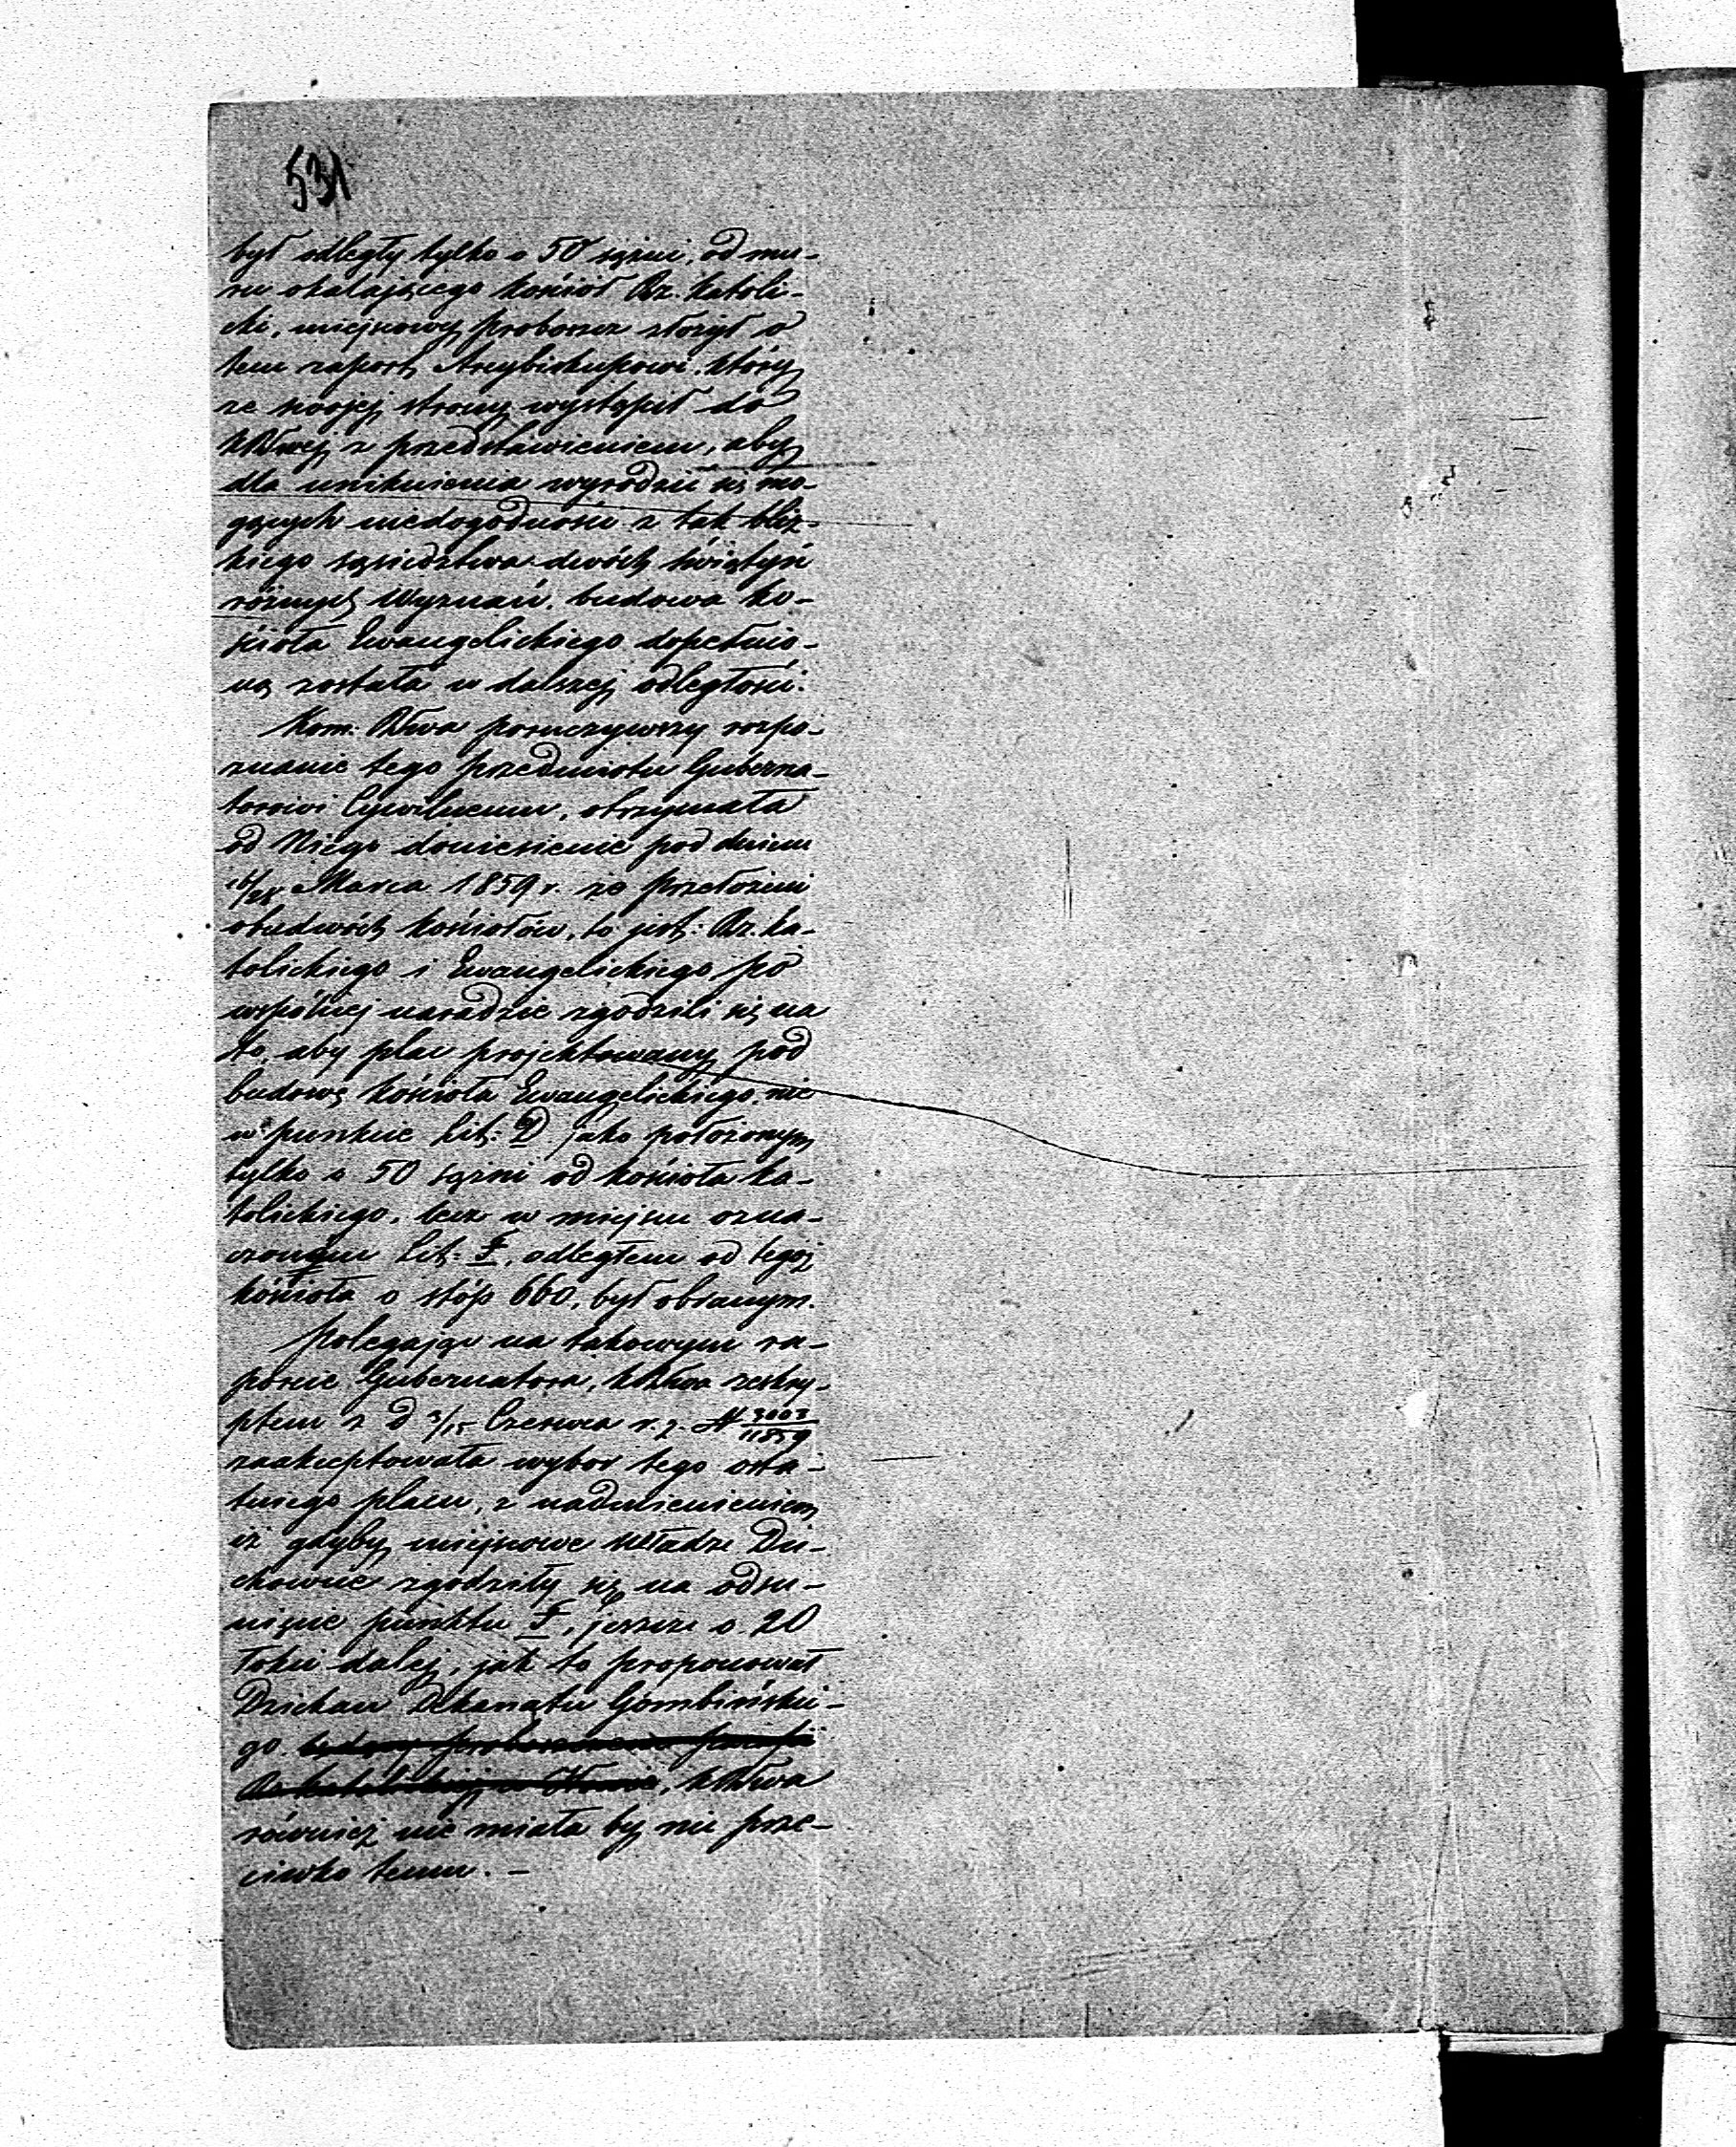 531
był odległy tylko o 50 sążni, od mu-
ru okalającego Kościół Rz. Katoli-
cki, miejscowy proboszcz złożył o
tem raport Arcybiskupowi, który
ze swojej strony wystąpił do
KRwej z przedstawieniem, aby
dla uniknienia wyrodzić się mo-
gących niedogodności z tak bliz-
kiego sąsiedztwa dwóch świątyń
różnych Wyznań, budowa Ko-
ścioła Ewangelickiego dopełnio-
ną została w dalszej odległości.
Kom. Rwa poruczywszy rozpo-
znanie tego przedmiotu Guberna-
torowi Cywilnemu, otrzymała
od Niego doniesienie pod dniem
16/28 Marca 1859 r. że przełożeni
obudwóch Kościołów, to jest: Rz. Ka-
tolickiego i Ewangelickiego po
wspólnej naradzie zgodzili się na
to, aby plac projektowany pod
budowę Kościoła Ewangelickiego, nie
w punkcie Lit: D jako położonym
tylko o 50 sążni od Kościoła Ka-
tolickiego, lecz w miejscu ozna-
czonym Lit: F, odległem od tegoż
Kościoła o stóp 660, był obranym.
Polegając na takowym ra-
porcie Gubernatora, KRwa reskry-
ptem z d 3/15 Czerwca r. z. N 3003/11859
zaakceptowała wybor tego osta-
tniego placu, z nadmienieniem
iż gdyby miejscowe Władze Du-
chowne zgodziły się na odsu-
nięcie punktu F, jeszcze o 20
łokci dalej, jak to proponował
Dziekan Dekanatu Gombińskie-
go, KRwa
również nie miała by nic prze-
ciwko temu. -